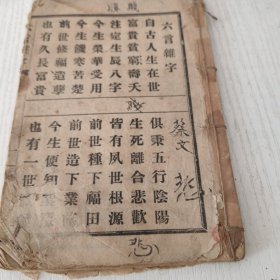 六言雜字
自古人生在世
俱秉五行陰陽
富貴貧窮壽夭
生死離合悲歡
注定生辰八字
皆有夙世根源
今生榮華受用
前世種下福田
今生饑寒苦楚
前世造下業
前世修福造孽
今生便知
也有久長富貴
也有一世
蔡文